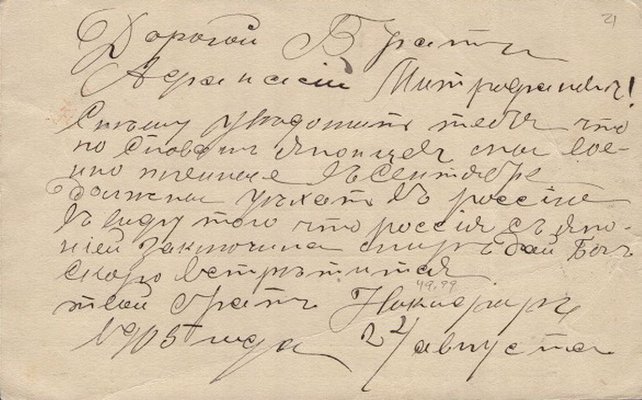 21
Дорогой Братъ
Афанасій Митрофановичъ!
Спѣшу уведомить тебя что
по словам японцев мы вое-
нно пленные въ сентябре
должны уехать въ россию
въ виду того что россия съ япо-
ніей заключила миръ дай Богъ
скоро встретится
твой братъ
49.99
1905 года 24 августа